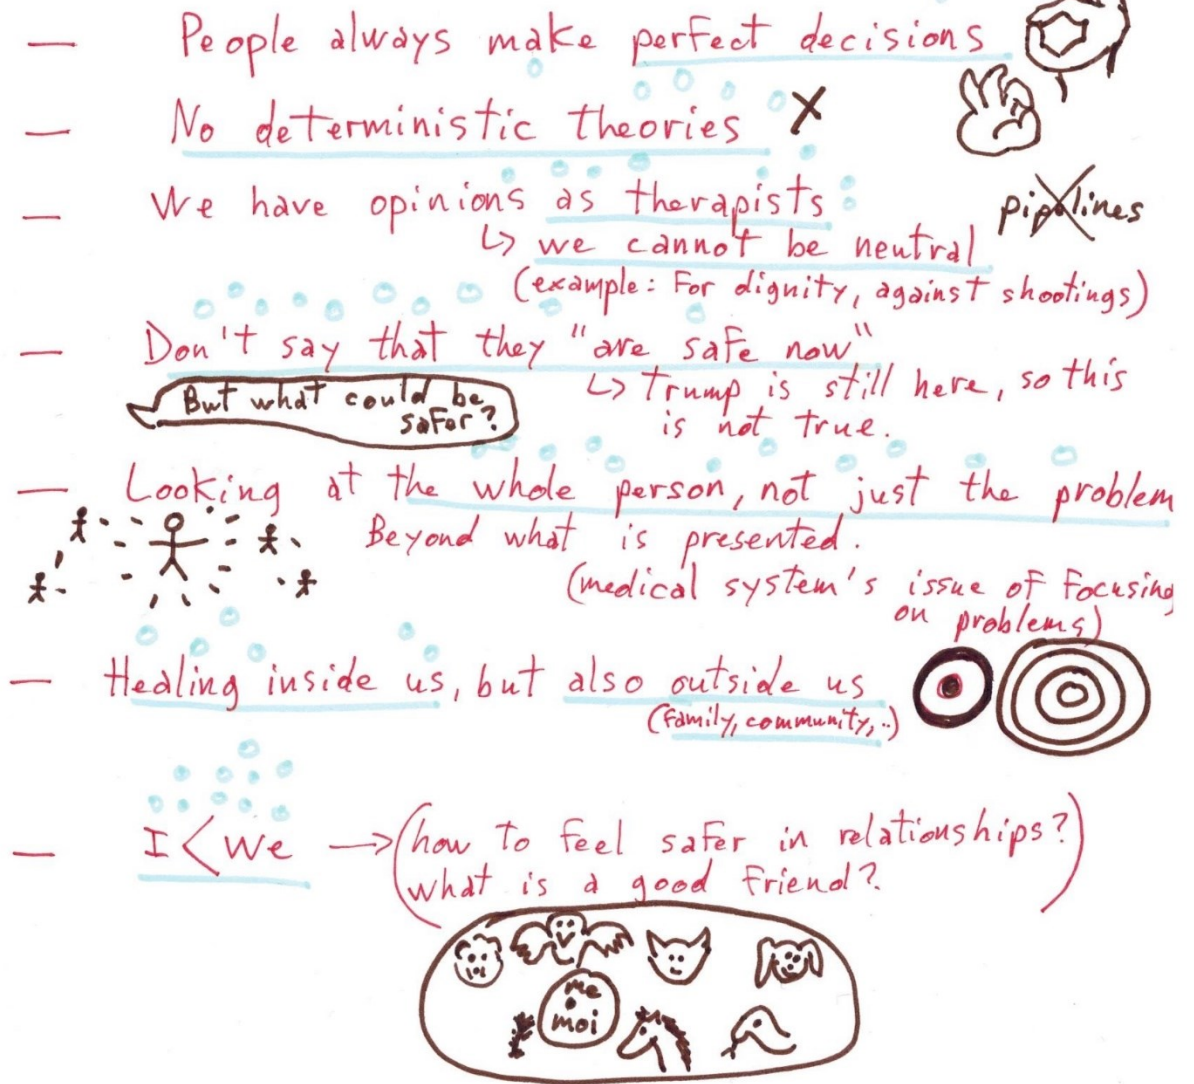 — People always make perfect decisions
— No deterministic theories X
— We have opinions as therapists
pipelines
↳ we cannot be neutral
(example: For dignity, against shootings)
— Don't say that they "are safe now"
↳ Trump is still here, so this
is not true.
But what could be
safer?
— Looking at the whole person, not just the problem
Beyond what is presented.
(medical system's issue of focusing
on problems)
— Healing inside us, but also outside us
(family, community, ..)
— I < we → (how to feel safer in relationships?
what is a good friend?)
me
moi